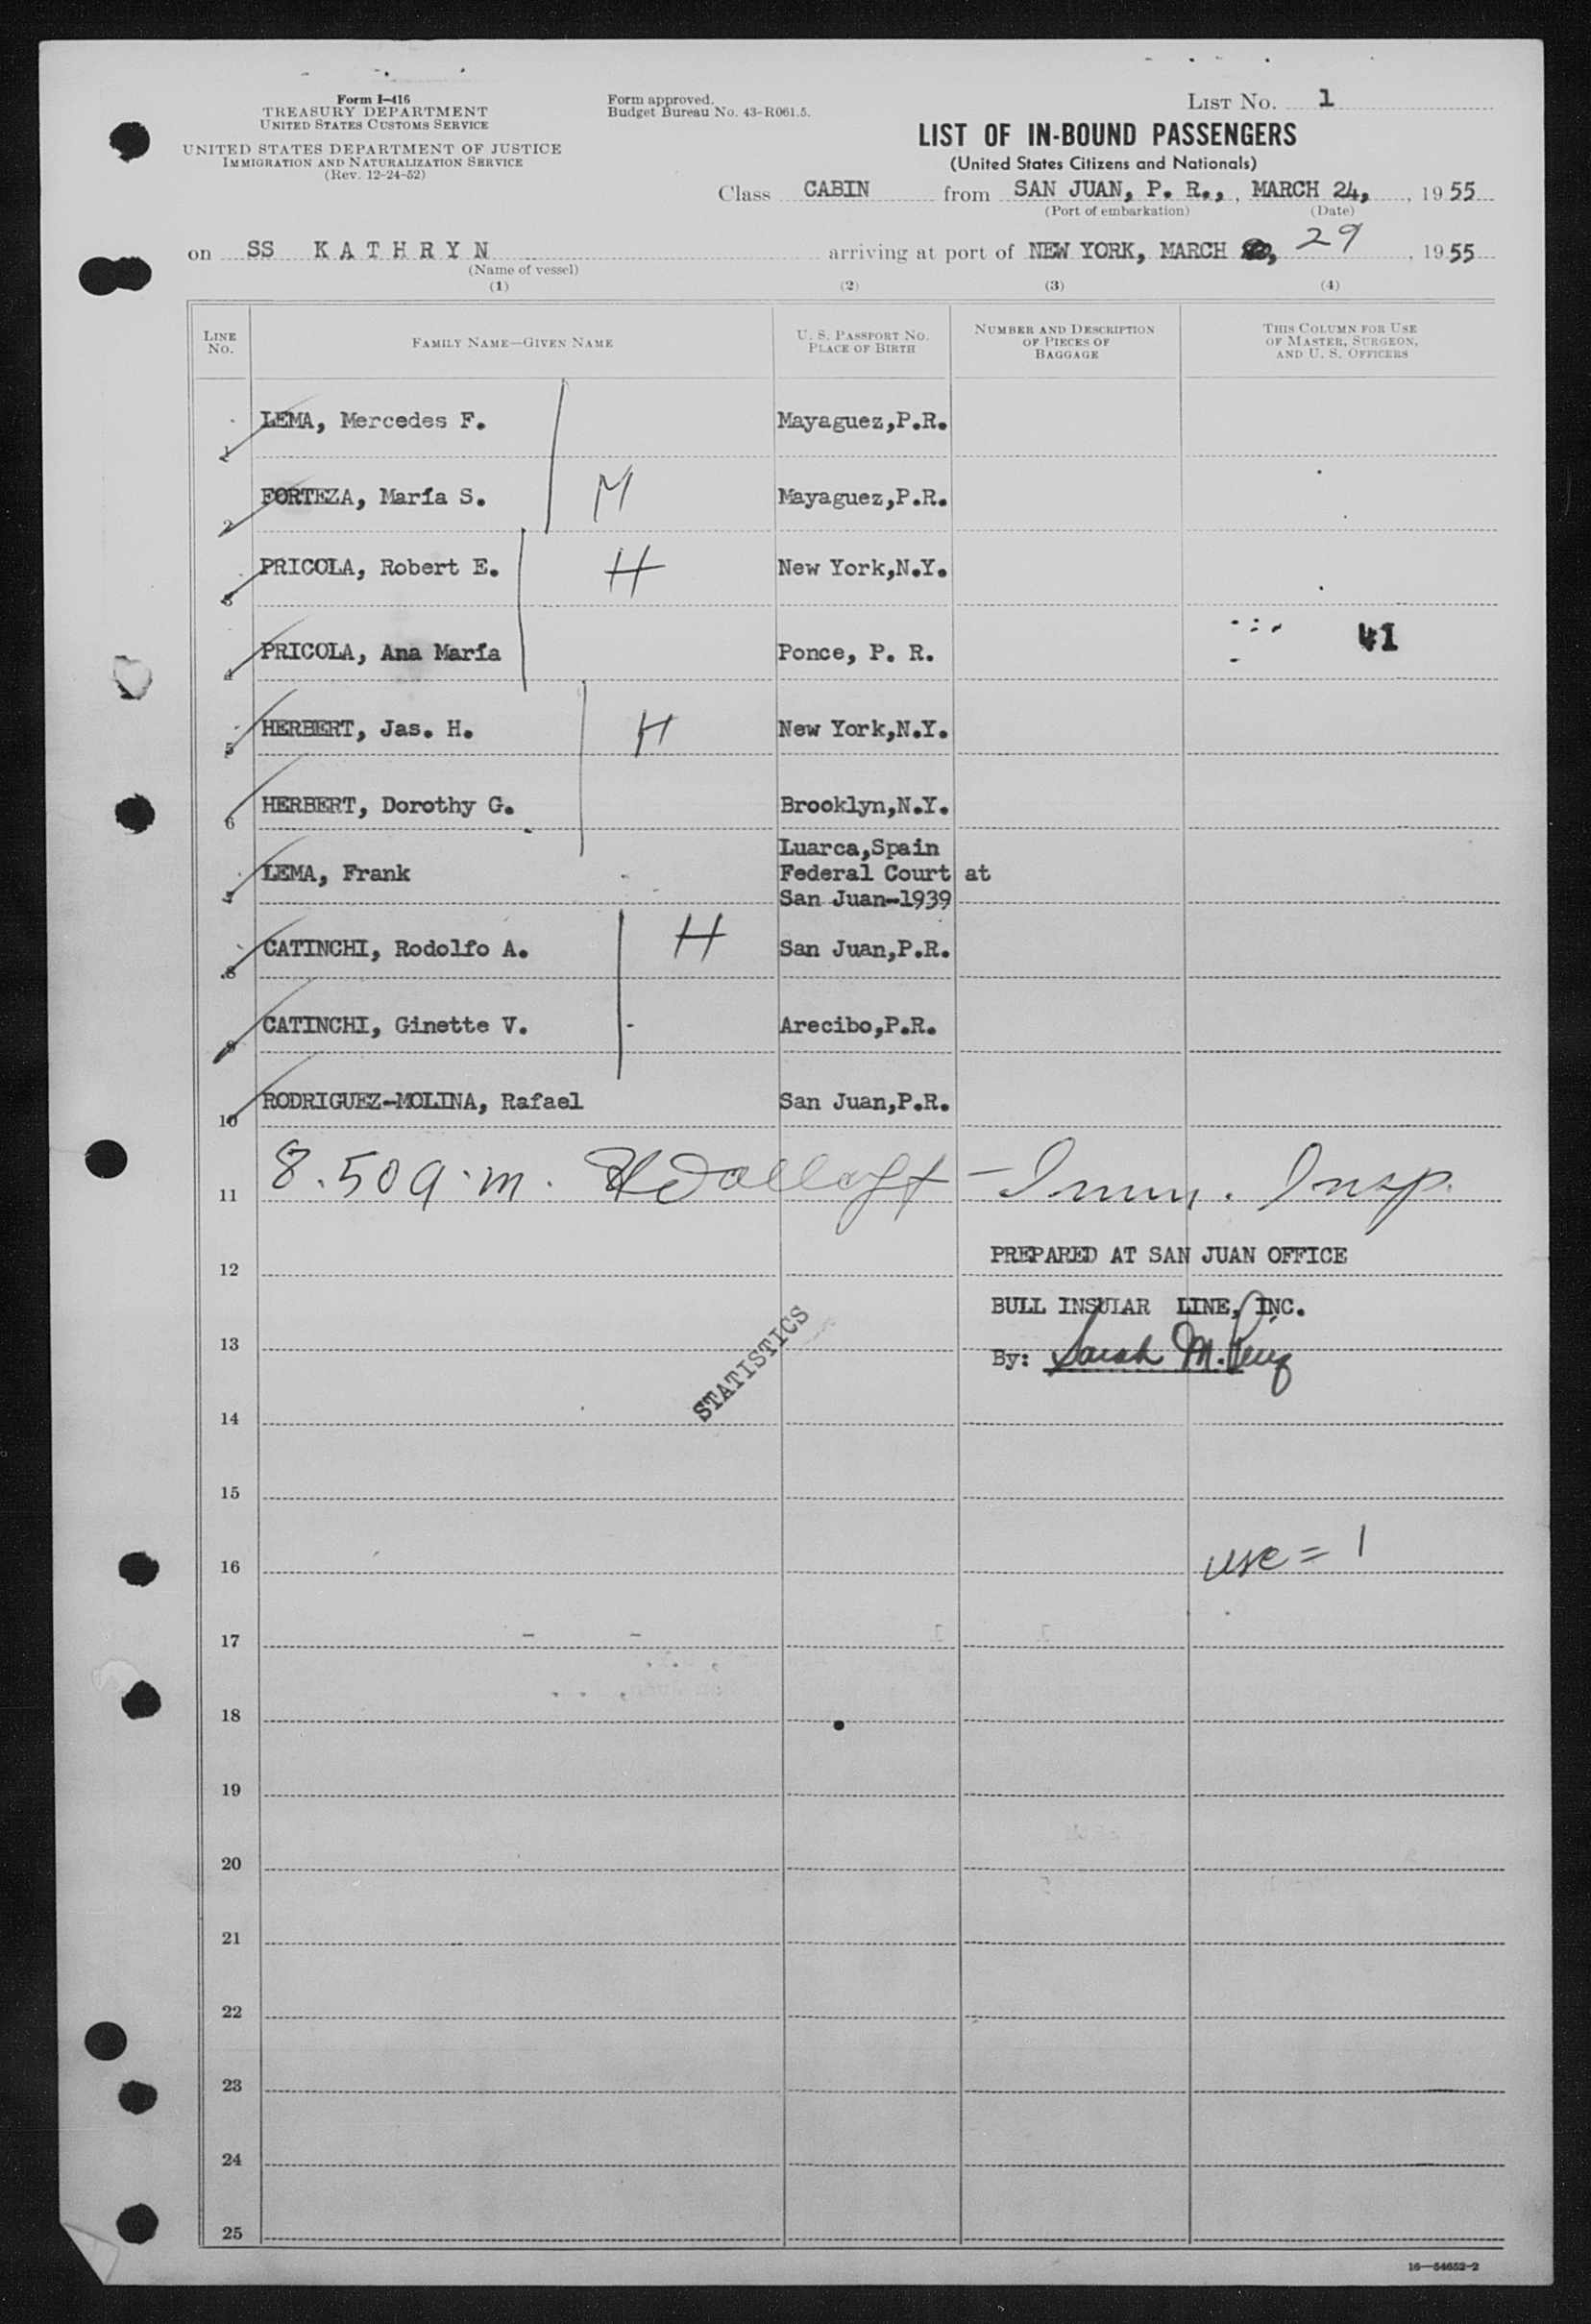 Form I-416
TREASURY DEPARTMENT
UNITED STATES CUSTOMS SERVICE
UNITED STATES DEPARTMENT OF JUSTICE
IMMIGRATION AND NATURALIZATION SERVICE
(Rev. 12-24-52)
Form approved.
Budget Bureau No. 43-R061.5.
LIST NO. 1
LIST OF IN-BOUND PASSENGERS
(United States Citizens and Nationals)
Class CABIN from SAN JUAN, P. R., , MARCH 24, , 1955
(Port of embarkation) (Date)
on SS KATHRYN arriving at port of NEW YORK, MARCH 29, 1955
(Name of vessel)
(1) (2) (3) (4)
LINE NO. FAMILY NAME—GIVEN NAME U. S. PASSPORT NO. PLACE OF BIRTH NUMBER AND DESCRIPTION OF PIECES OF BAGGAGE THIS COLUMN FOR USE OF MASTER, SURGEON, AND U. S. OFFICERS
1 LEMA, Mercedes F. Mayaguez,P.R.
2 FORTEZA, María S. M Mayaguez,P.R.
3 PRICOLA, Robert E. H New York,N.Y.
4 PRICOLA, Ana María Ponce, P. R. 41
5 HERBERT, Jas. H. H New York,N.Y.
6 HERBERT, Dorothy G. Brooklyn,N.Y.
Luarca,Spain
7 LEMA, Frank Federal Court at
San Juan-1939
8 CATINCHI, Rodolfo A. H San Juan,P.R.
9 CATINCHI, Ginette V. Arecibo,P.R.
10 RODRIGUEZ-MOLINA, Rafael San Juan,P.R.
11 8.50 a.m. - Imm. Insp.
12 PREPARED AT SAN JUAN OFFICE
BULL INSULAR LINE, INC.
13 By: Sarah M.
STATISTICS
14
15
16 use = 1
17
18
19
20
21
22
23
24
25
16—54652-2